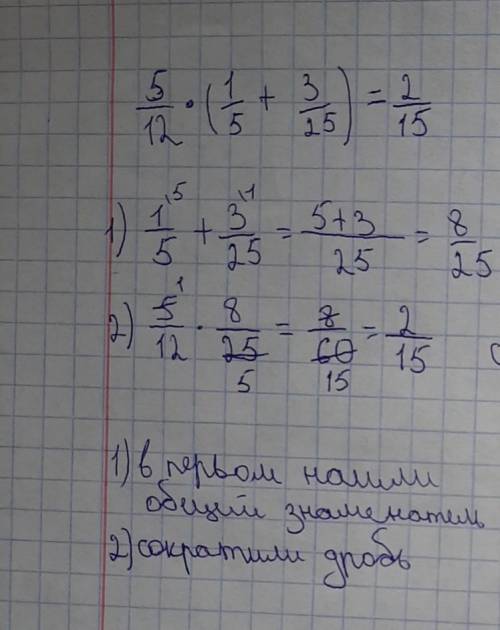 5/12 · (1/5 + 3/25) = 2/15
1) 1\5/5 + 3\1/25 = 5+3/25 = 8/25
2) 5 1/12 · 8/25 5 = 8/60 15 = 2/15
1) в первом нашли
общий знаменатель
2) сократили дробь